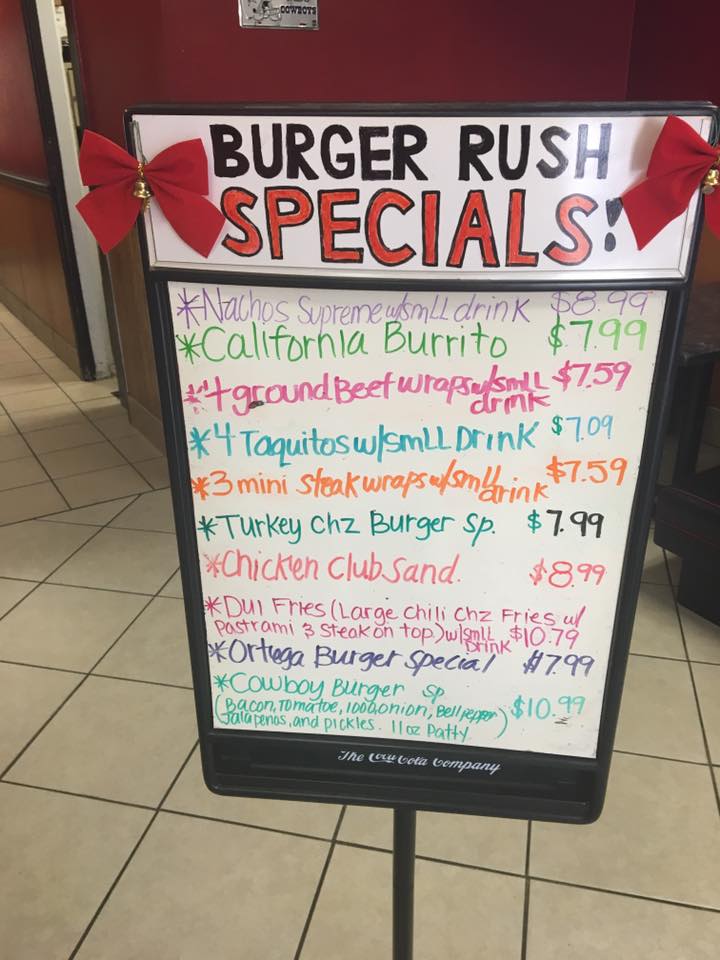 COWBOYS
BURGER RUSH
SPECIALS!
*Nachos Supreme w/smLL drink $8.99
*California Burrito $7.99
*4 ground Beef wraps w/smLL $7.59
drink
*4 Taquitos w/smLL Drink $7.09
*3 mini steak wraps w/smll $7.59
drink
*Turkey Chz Burger Sp. $7.99
*Chicken Club Sand. $8.99
*DUI Fries (Large Chili Chz Fries w/
Pastrami & Steak on top.) w/smLL $10.79
Drink
*Ortega Burger Special $7.99
*Cowboy Burger sp $10.99
(Bacon, Tomatoe, 1000, onion, Bell pepper)
Jalapenos, and pickles. 11oz Patty
The Coca-Cola Company